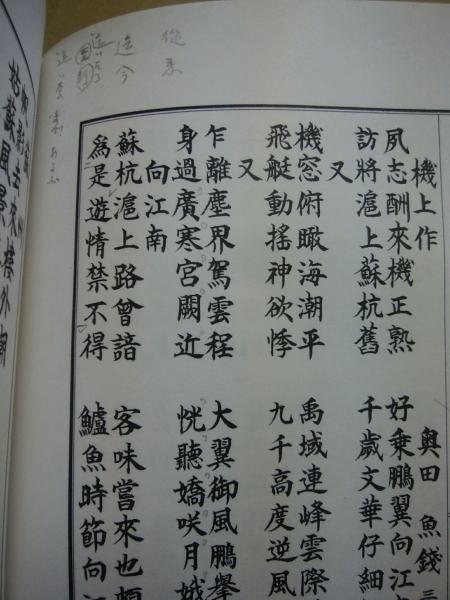 機上作
奥田 魚錢 三
夙志酬來機正熟 好乘鵬翼向江
訪將滬上蘇杭舊 千歲文華仔細
又
機窓俯瞰海潮平 禹域連峰雲際
飛艇動搖神欲悸 九千高度逆風
又
乍離塵界駕雲程 大翼御風鵬擧
身過廣寒宮闕近 恍聽嬌咲月娥
向江南
蘇杭滬上路曾諳 客味嘗來也頗
爲是遊情禁不得 鱸魚時節向江
從來
迄今